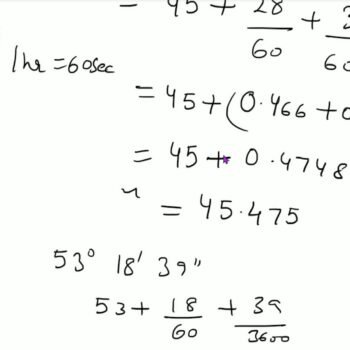 = 45 + 28/60 +
1hr = 60sec
= 45 + (0.466 +
= 45 + 0.4748
= 45.475
53° 18' 39"
53 + 18/60 + 39/3600